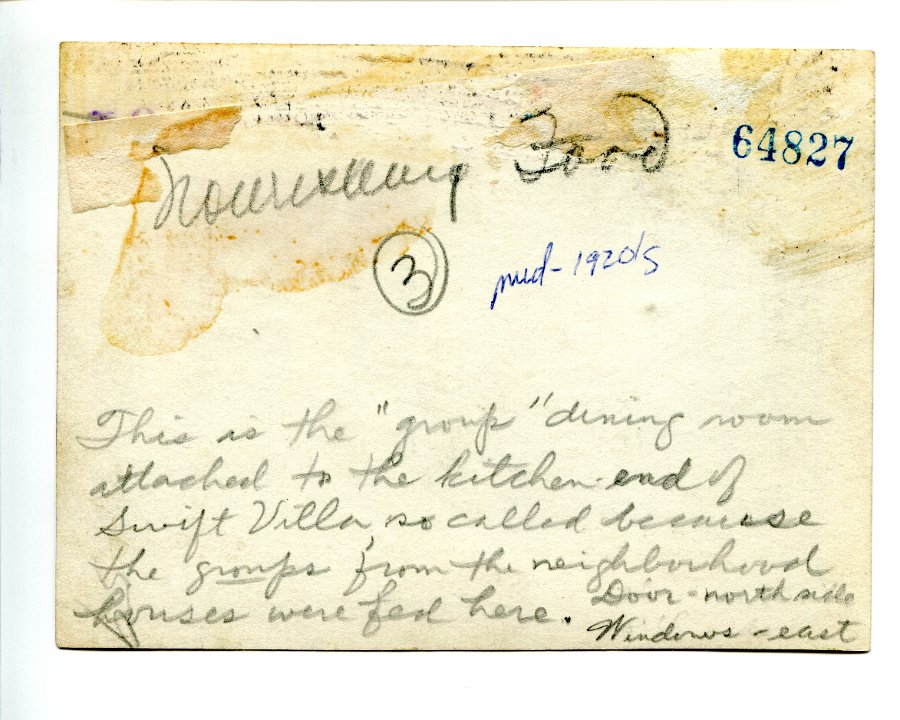 Nourishing Food
64827
3
mid-1920's
This is the "group" dining room
attached to the kitchen end of
Swift Villa, so called because
the groups from the neighborhood
houses were fed here. Door - north side
Windows - east